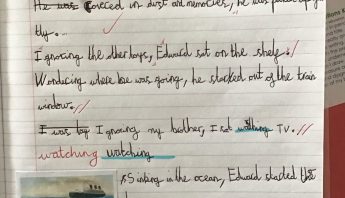 He was Covered in dust and memories, he was
tly...
Ignoring the other toys, Edward sat on the shelf.
Wonducing where he was going, he starked out of the train
window.
I was Ignoring my brother, I sat TV.
watching watching
Sinking in the ocean, Edward started